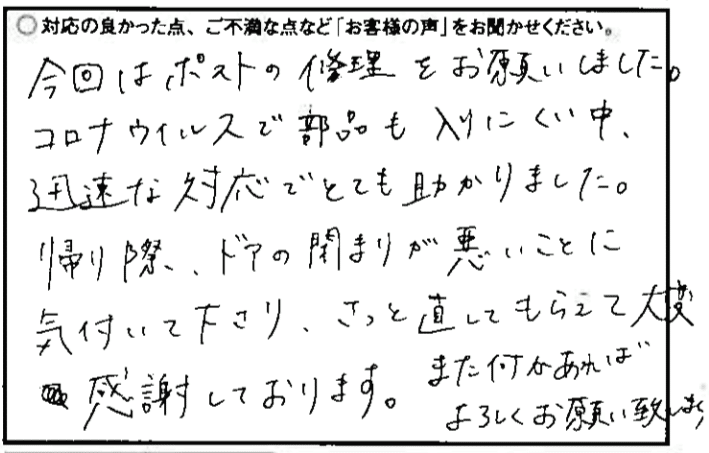 ○対応の良かった点、ご不満な点など「お客様の声」をお聞かせください。
今回はポストの修理をお願いしました。
コロナウイルスで部品も入りにくい中、
迅速な対応でとても助かりました。
帰り際、ドアの閉まりが悪いことに
気付いて下さり、さっと直してもらえて大変
感謝しております。
また何かあれば
よろしくお願い致します